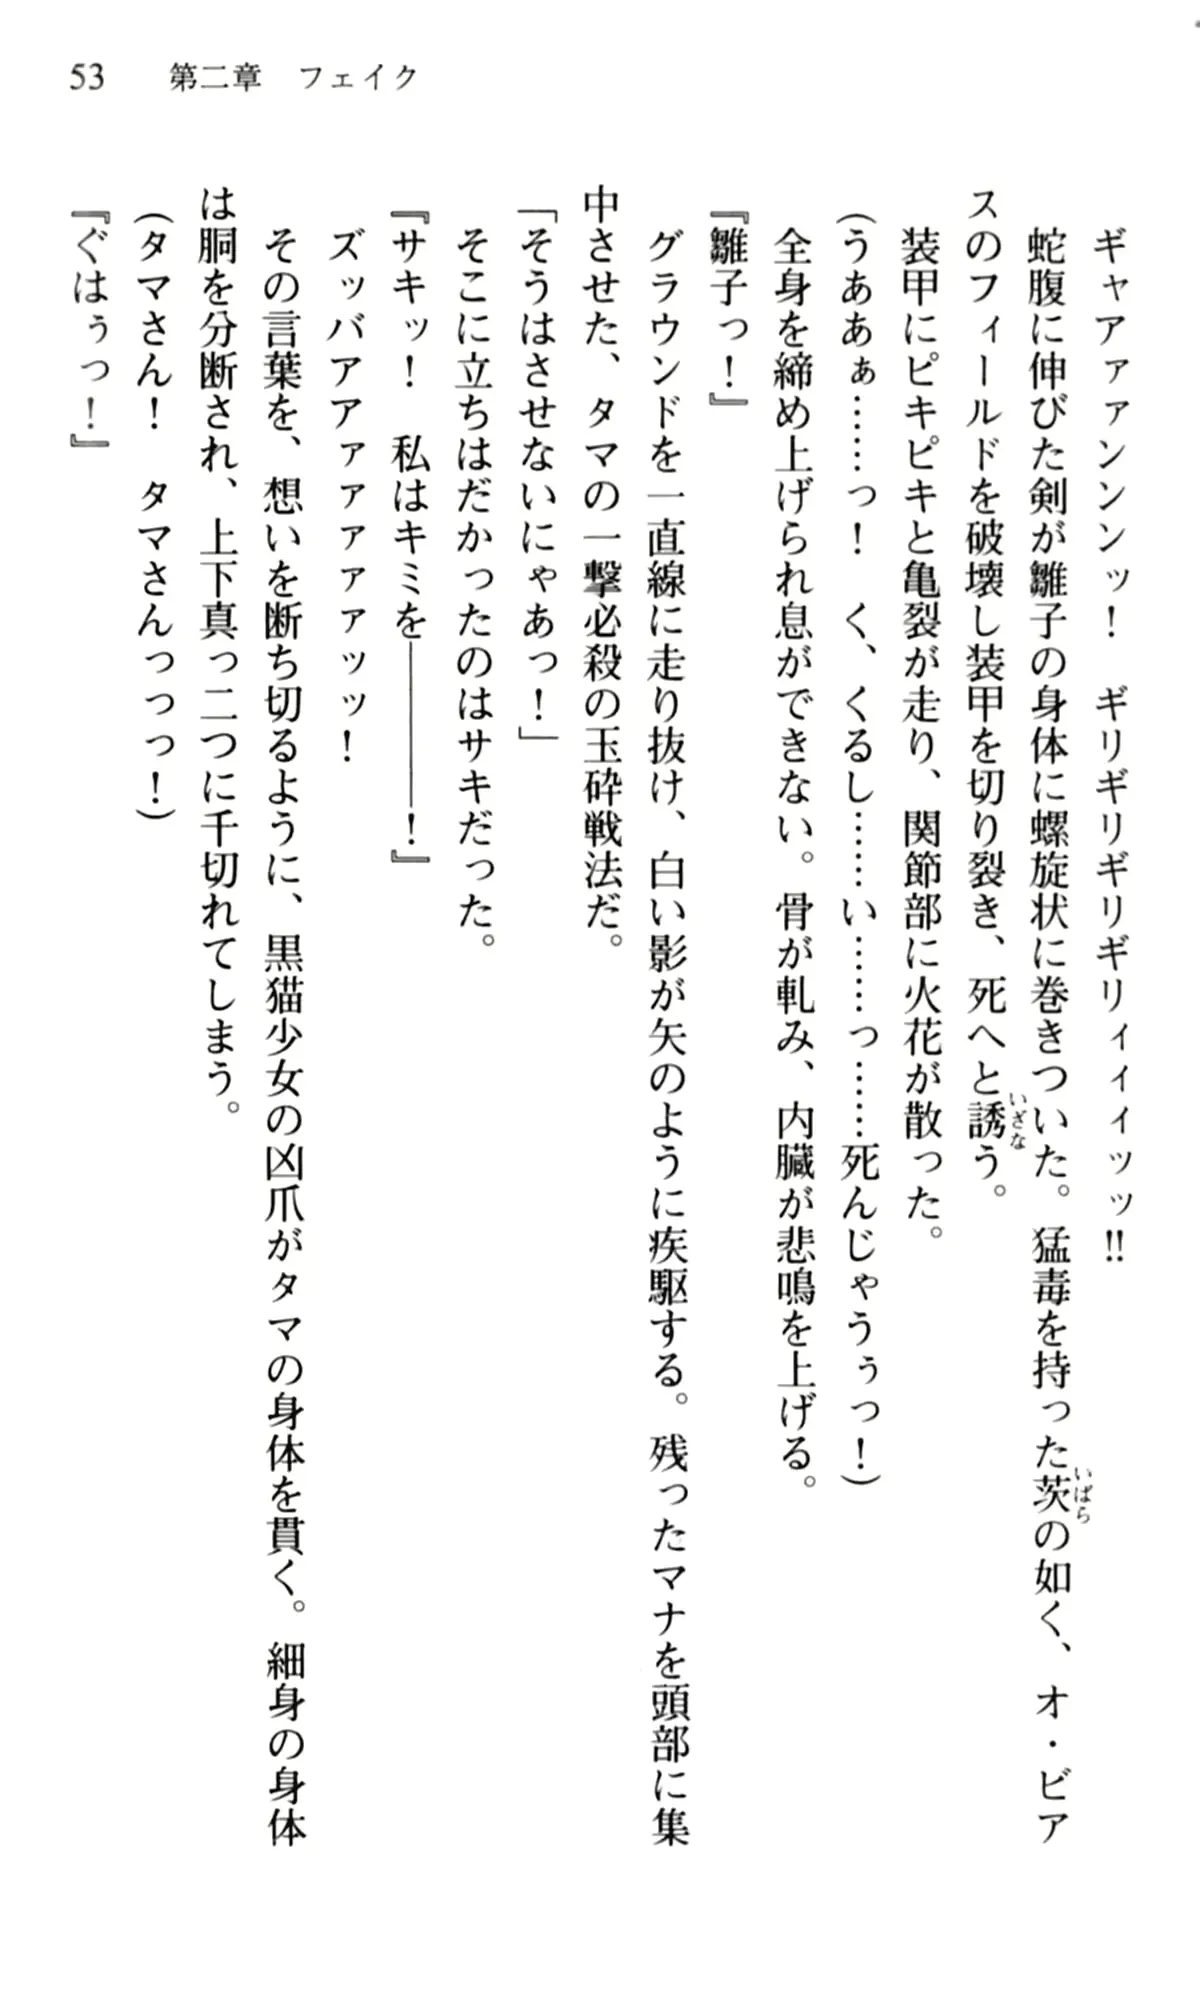 53　第二章　フェイク
ギャアァァンンンッ！　ギリギリギリギリィィィッッ!!
蛇腹に伸びた剣が雛子の身体に螺旋状に巻きついた。猛毒を持った茨の如く、オ・ビア
スのフィールドを破壊し装甲を切り裂き、死へと誘う。
装甲にピキピキと亀裂が走り、関節部に火花が散った。
（うああぁ……っ！　く、くるし……い……っ……死んじゃうぅっ！）
全身を締め上げられ息ができない。骨が軋み、内臓が悲鳴を上げる。
『雛子っ！』
グラウンドを一直線に走り抜け、白い影が矢のように疾駆する。残ったマナを頭部に集
中させた、タマの一撃必殺の玉砕戦法だ。
「そうはさせないにゃあっ！」
そこに立ちはだかったのはサキだった。
『サキッ！　私はキミを――――！』
ズッバアアァァァァァッッ！
その言葉を、想いを断ち切るように、黒猫少女の凶爪がタマの身体を貫く。細身の身体
は胴を分断され、上下真っ二つに千切れてしまう。
（タマさん！　タマさんっっっ！）
『ぐはぅっ！』
いばら
いざな